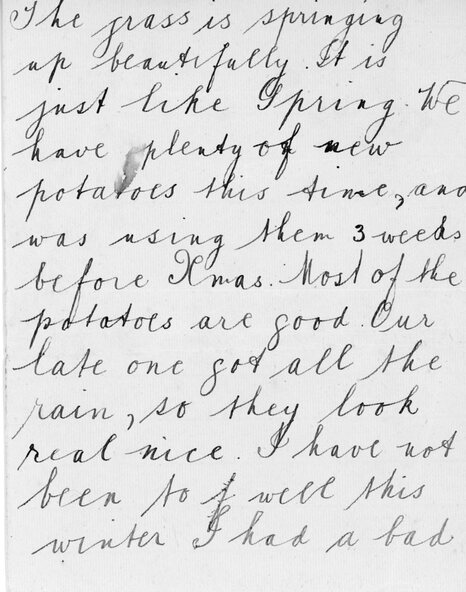 The grass is springing
up beautifully. It is
just like Spring. We
have plenty of new
potatoes this time, and
was using them 3 weeks
before Xmas. Most of the
potatoes are good. Our
late one got all the
rain, so they look
real nice. I have not
been to well this
winter I had a bad